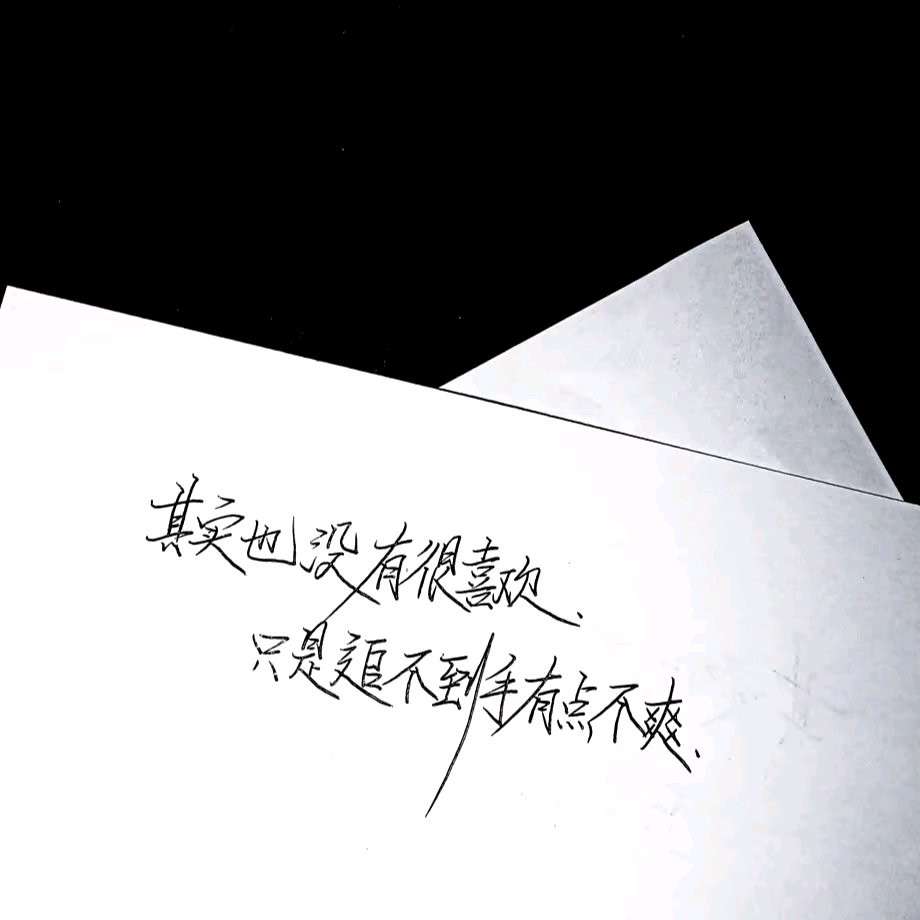 其实也没有很喜欢.
只是追不到手有点不爽.